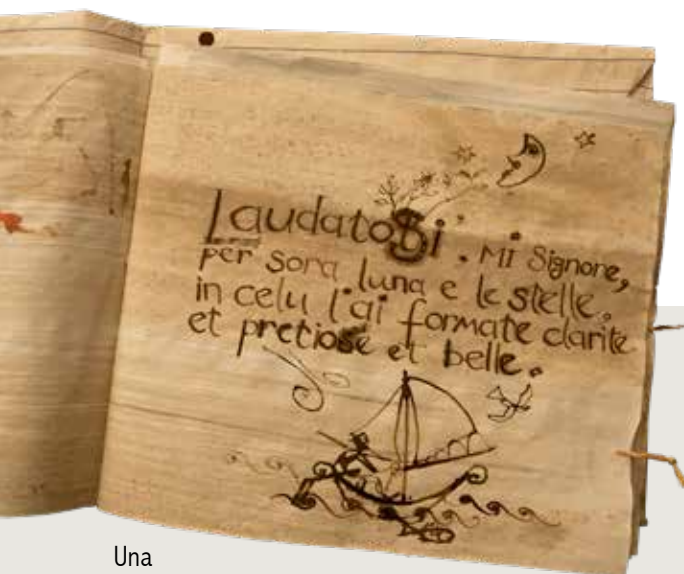 Laudato Si'. Mi Signore,
per sora luna e le stelle,
in celu l'ai formate clarite
et pretiose et belle.
Una